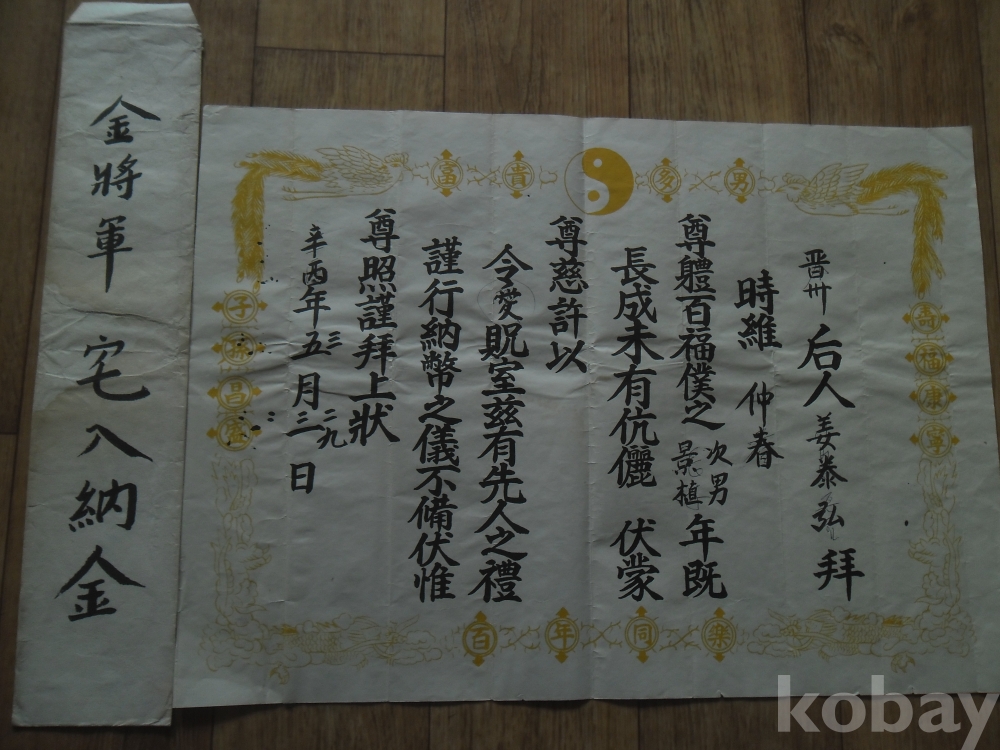 金將軍 宅入納金
晋州 后人 姜泰弘 拜
時維 仲春
尊體百福僕之 次男 景植 年既
長成未有伉儷 伏蒙
尊慈許以
令愛貺室茲有先人之禮
謹行納幣之儀不備伏惟
尊照謹拜上狀
辛酉年 三五月 二九三日
富 貴 多 男
壽 福 康 寧
子 孫 昌 盛
百 年 同 樂
kobay